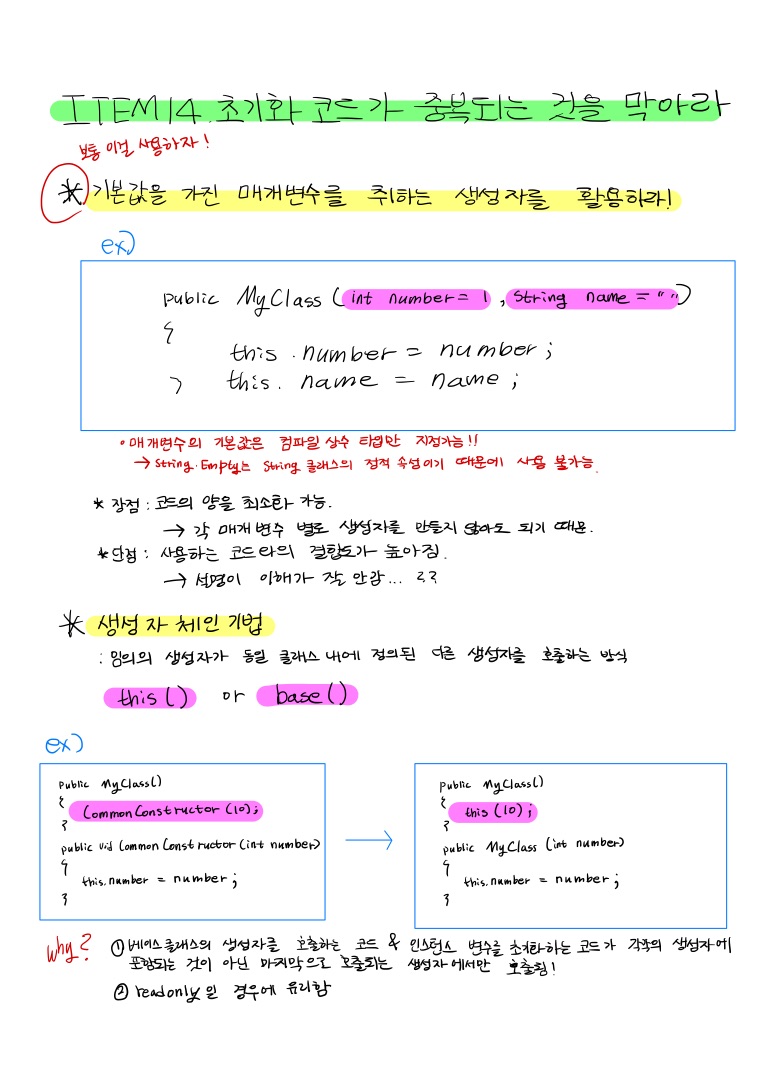 ITEM14. 초기화 코드가 중복되는 것을 막아라
보통 이걸 사용하자!
* 기본값을 가진 매개변수를 취하는 생성자를 활용하라!
ex)
public MyClass (int number = 1, string name = "")
{
this.number = number;
} this.name = name;
• 매개변수의 기본값은 컴파일 상수 타입만 지정가능!!
→ String.Empty는 String 클래스의 정적 속성이기 때문에 사용 불가능.
* 장점 : 코드의 양을 최소한 가능.
→ 각 매개변수 별로 생성자를 만들지 않아도 되기 때문.
* 단점 : 사용하는 코드와의 결합도가 높아짐.
→ 설명이 이해가 잘 안감... ㄹㄹ
* 생성자 체인 기법
: 임의의 생성자가 동일 클래스 내에 정의된 다른 생성자를 호출하는 방식
this() or base()
ex)
public MyClass()
{
CommonConstructor(10);
}
public void CommonConstructor(int number)
{
this.number = number;
}
→
public MyClass()
{
this(10);
}
public MyClass (int number)
{
this.number = number;
}
why? ① 베이스 클래스의 생성자를 호출하는 코드 & 인스턴스 변수를 초기화하는 코드가 각각의 생성자에
포함되는 것이 아닌 마지막으로 호출되는 생성자에서만 호출됨!
② readonly일 경우에 유리함